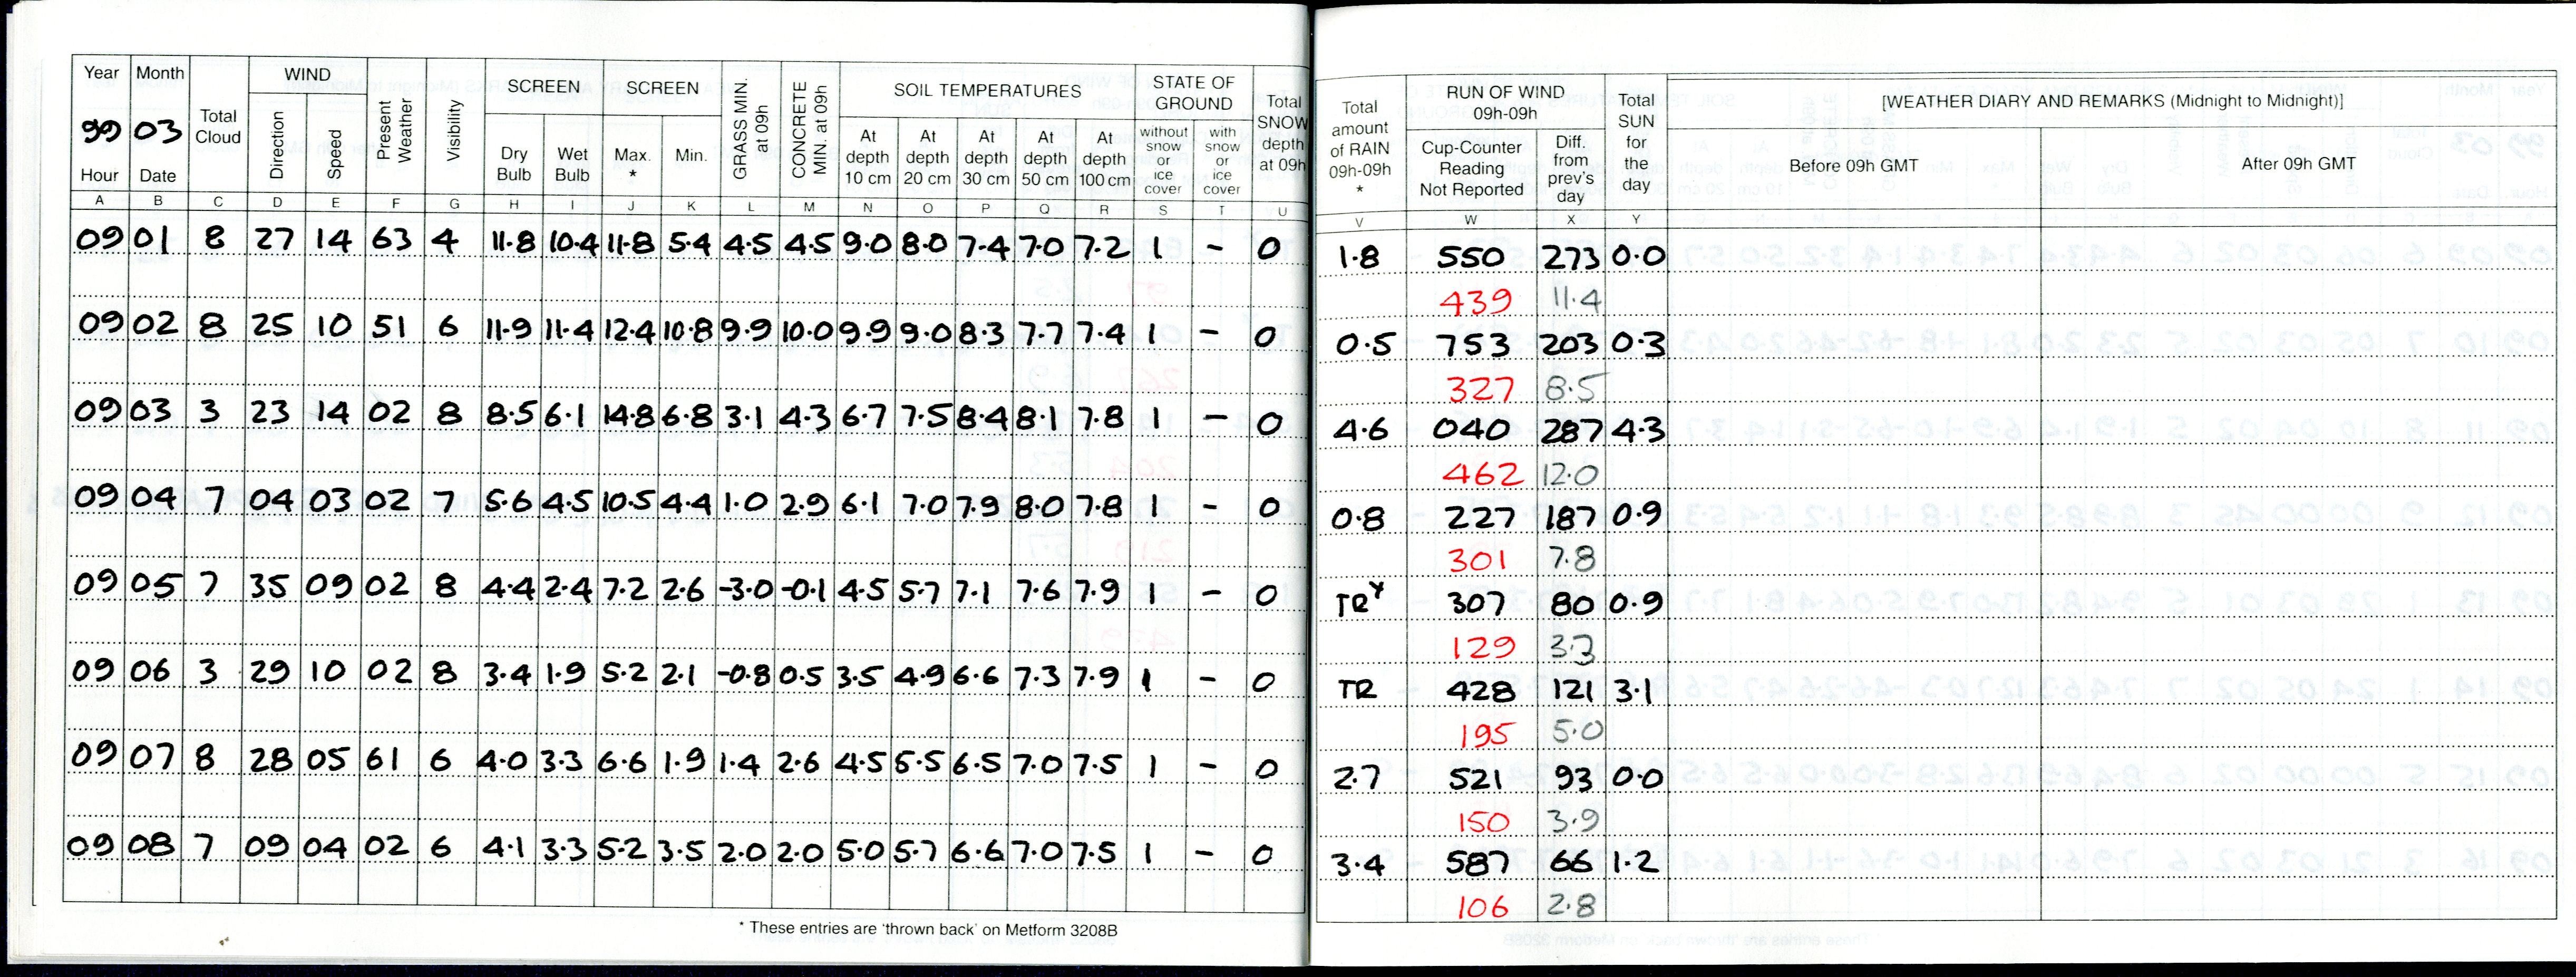 Year Month Total Cloud WIND Present Weather Visibility SCREEN SCREEN GRASS MIN. at 09h CONCRETE MIN. at 09h SOIL TEMPERATURES STATE OF GROUND Total SNOW depth at 09h
99 03 Direction Speed Dry Bulb Wet Bulb Max. * Min. At depth 10 cm At depth 20 cm At depth 30 cm At depth 50 cm At depth 100 cm without snow or ice cover with snow or ice cover
Hour Date
A B C D E F G H I J K L M N O P Q R S T U
09 01 8 27 14 63 4 11.8 10.4 11.8 5.4 4.5 4.5 9.0 8.0 7.4 7.0 7.2 1 - 0
09 02 8 25 10 51 6 11.9 11.4 12.4 10.8 9.9 10.0 9.9 9.0 8.3 7.7 7.4 1 - 0
09 03 3 23 14 02 8 8.5 6.1 14.8 6.8 3.1 4.3 6.7 7.5 8.4 8.1 7.8 1 - 0
09 04 7 04 03 02 7 5.6 4.5 10.5 4.4 1.0 2.9 6.1 7.0 7.9 8.0 7.8 1 - 0
09 05 7 35 09 02 8 4.4 2.4 7.2 2.6 -3.0 -0.1 4.5 5.7 7.1 7.6 7.9 1 - 0
09 06 3 29 10 02 8 3.4 1.9 5.2 2.1 -0.8 0.5 3.5 4.9 6.6 7.3 7.9 1 - 0
09 07 8 28 05 61 6 4.0 3.3 6.6 1.9 1.4 2.6 4.5 5.5 6.5 7.0 7.5 1 - 0
09 08 7 09 04 02 6 4.1 3.3 5.2 3.5 2.0 2.0 5.0 5.7 6.6 7.0 7.5 1 - 0
* These entries are 'thrown back' on Metform 3208B
Total amount of RAIN 09h-09h * RUN OF WIND 09h-09h Total SUN for the day [WEATHER DIARY AND REMARKS (Midnight to Midnight)]
Cup-Counter Reading Not Reported Diff. from prev's day Before 09h GMT After 09h GMT
V W X Y
1.8 550 273 0.0
439 11.4
0.5 753 203 0.3
327 8.5
4.6 040 287 4.3
462 12.0
0.8 227 187 0.9
301 7.8
TR 307 80 0.9
129 3.3
TR 428 121 3.1
195 5.0
2.7 521 93 0.0
150 3.9
3.4 587 66 1.2
106 2.8